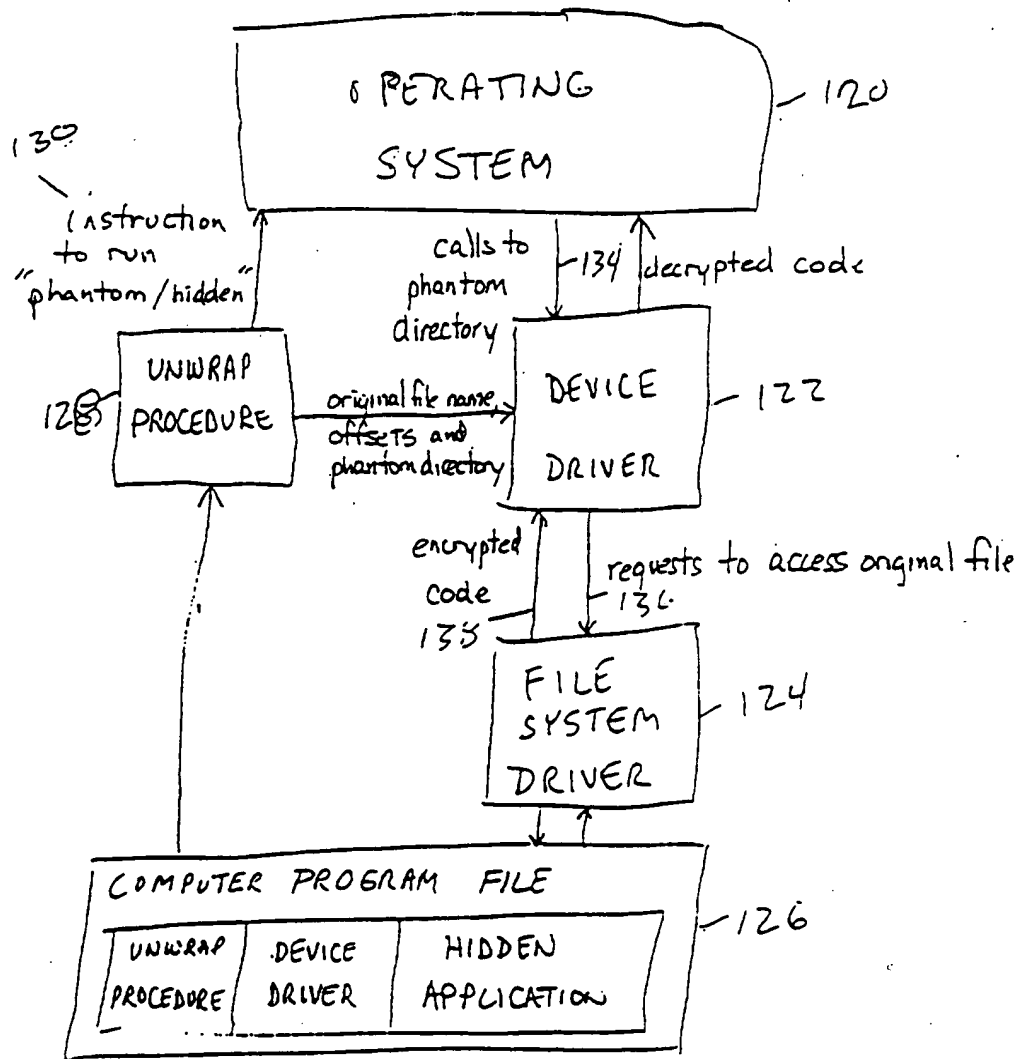 OPERATING
SYSTEM
120
130
instruction
to run
"phantom/hidden"
calls to
phantom
directory
134
decrypted code
UNWRAP
PROCEDURE
original file name,
offsets and
phantom directory
DEVICE
DRIVER
122
encrypted
code
requests to access original file
FILE
SYSTEM
DRIVER
124
COMPUTER PROGRAM FILE
UNWRAP
PROCEDURE
DEVICE
DRIVER
HIDDEN
APPLICATION
126